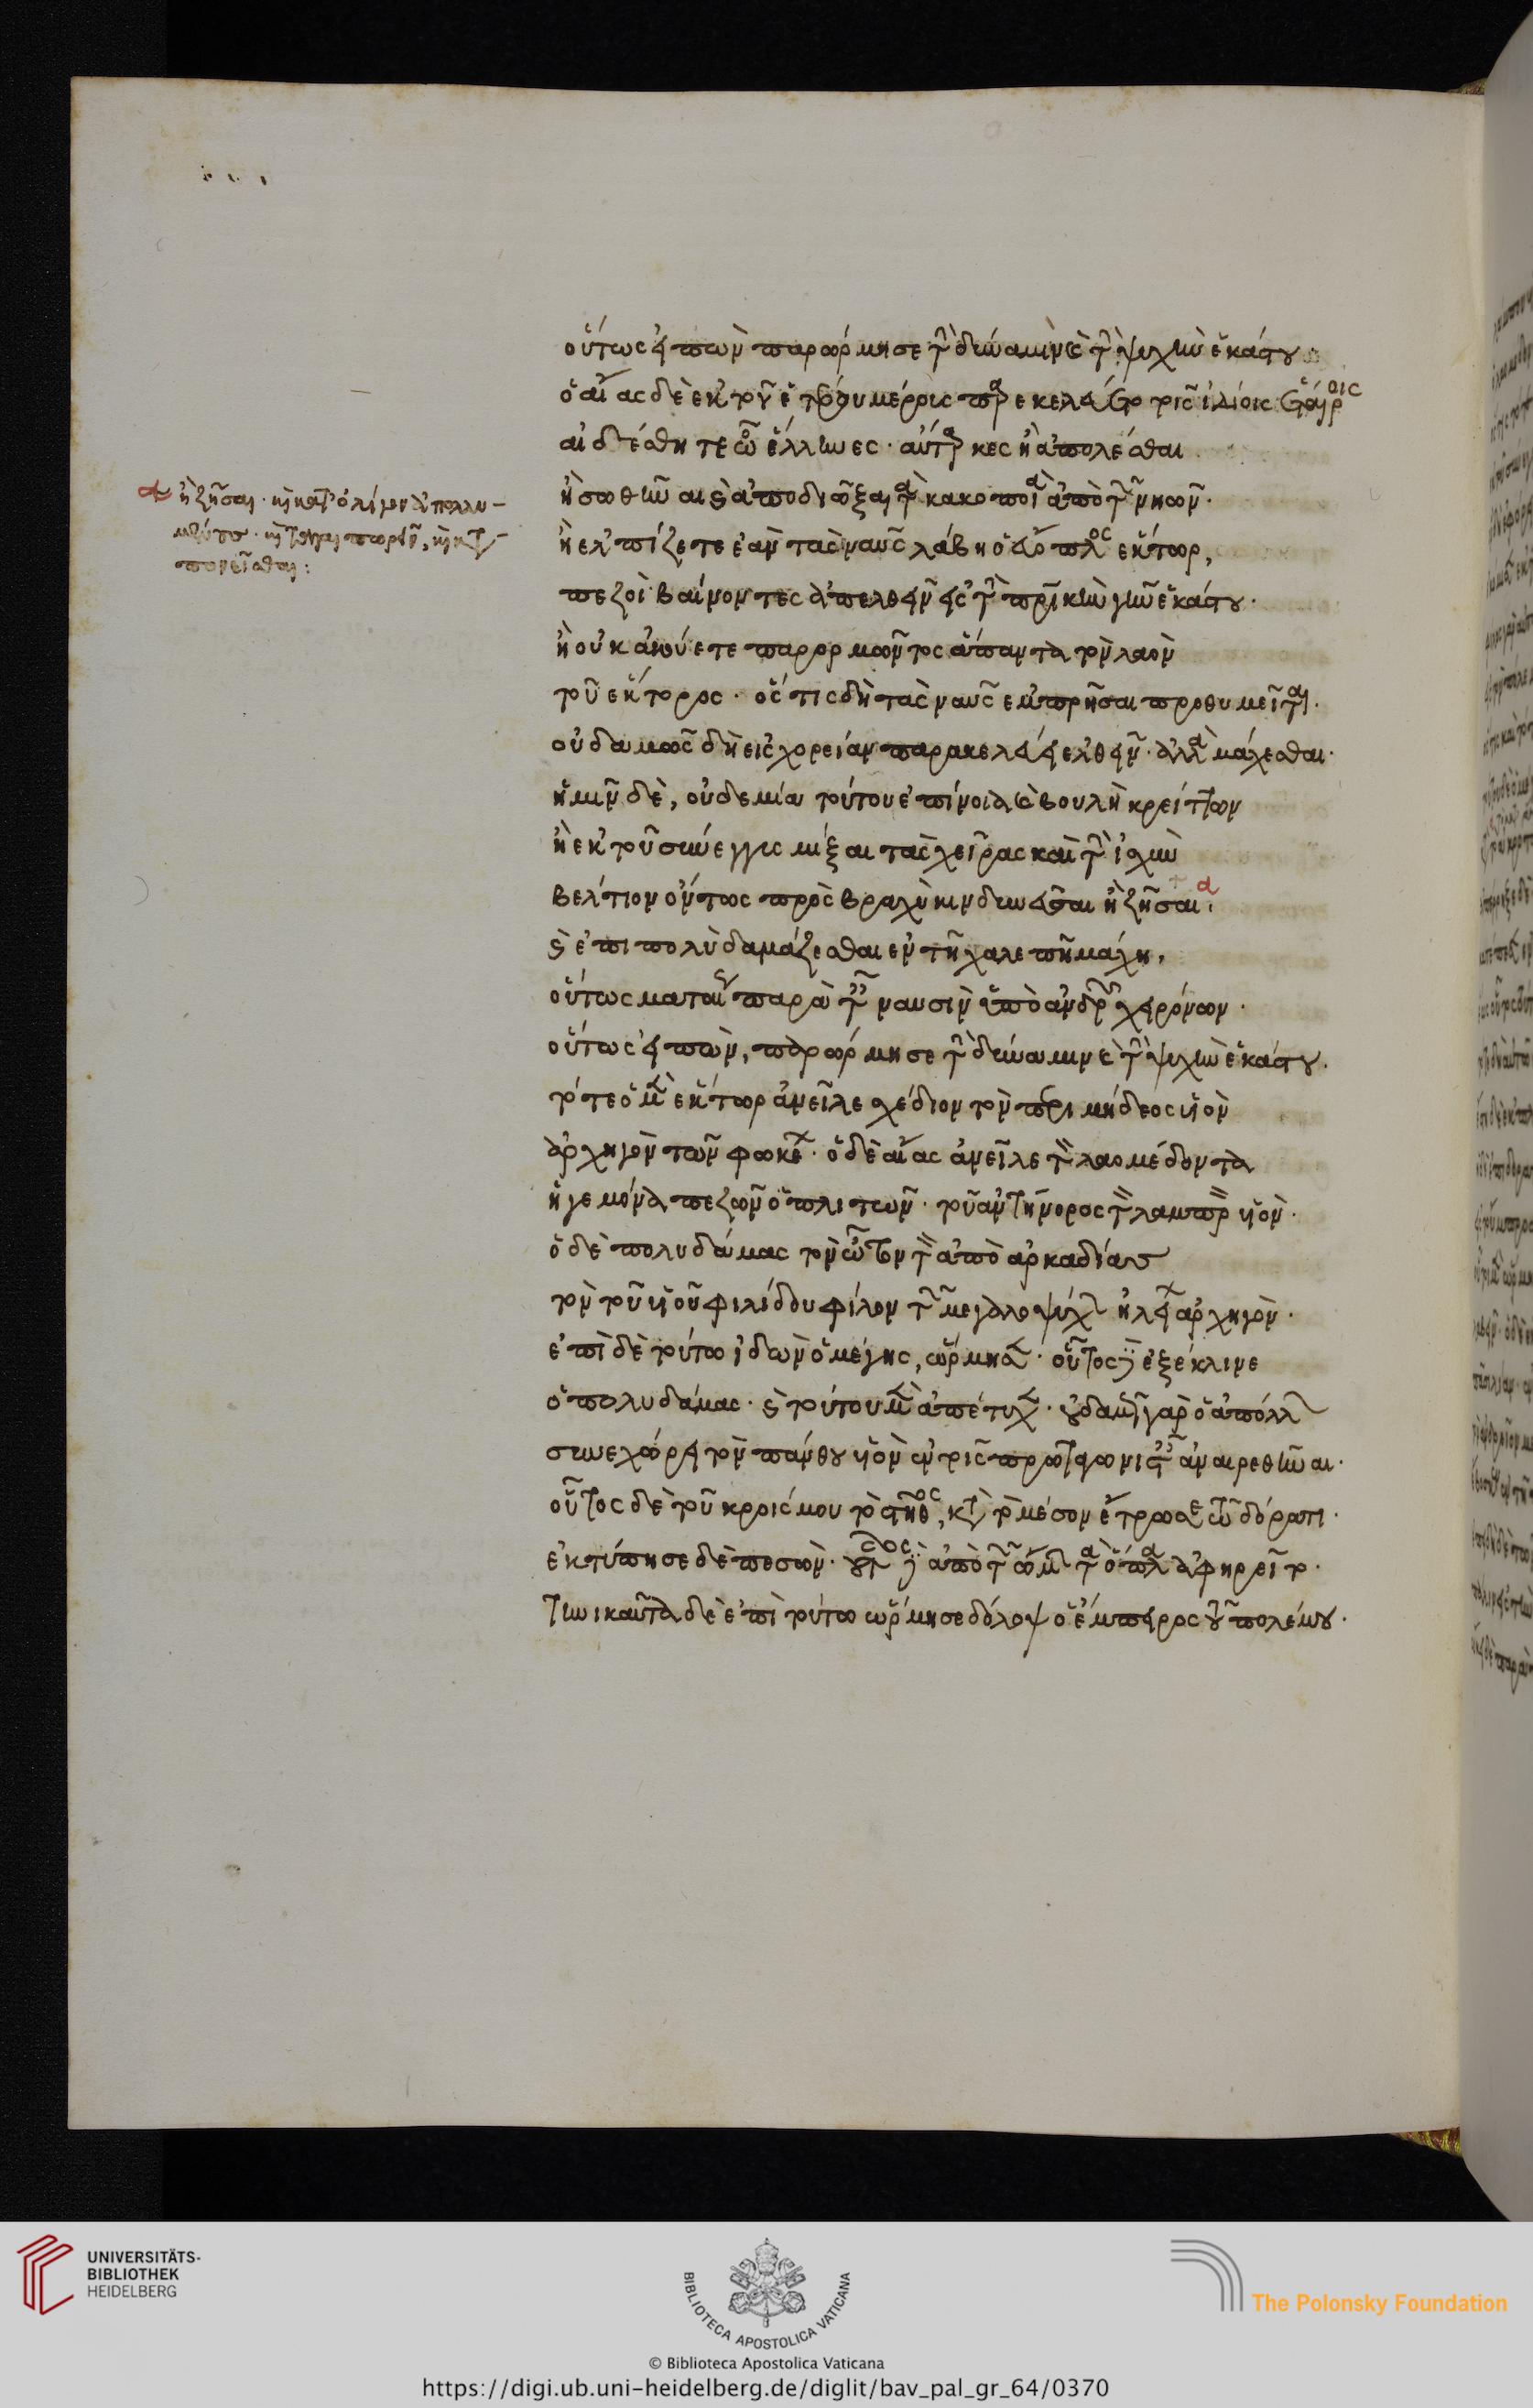 οὕτως εἰπὼν παρώρμησε τὴν δύναμιν καὶ τὴν ψυχὴν ἑκάστου
ὁ αἴας δὲ ἐκ τοῦ ἑτέρου μέρους παρεκελεύετο τοῖς ἰδίοις ἑταίροις
αἰδέσθητε ὦ ἕλληνες· αὔταρκες ἢ ἀπολέσθαι
ἢ σωθῆναι καὶ ἀποδιῶξαι τὰ κακοποιὰ ἀπὸ τῶν νηῶν·
ἢ ἐλπίζετε ἐὰν τὰς ναῦς λάβη ὁ εὔοπλος ἕκτωρ,
πεζοὶ βαίνοντες ἀπελθεῖν εἰς τὴν πατρικὴν γῆν ἑκάστου·
ἢ οὐκ ἀκούετε παρορμῶντος ἅπαντα τὸν λαὸν
τοῦ ἕκτορος· ὅστις δὴ τὰς ναῦς ἐμπρῆσαι προθυμεῖται·
οὐδαμῶς δὴ εἰς χορείαν παρακελεύει ἐλθεῖν· ἀλλὰ μάχεσθαι·
ἡμῖν δὲ, οὐδεμία τούτου ἐπίνοια καὶ βουλὴ κρείττων
ἢ ἐκ τοῦ σύνεγγυς μίξαι τὰς χεῖρας καὶ τὴν ἰσχὺν
βέλτιον ὄντως πρὸς βραχὺ κινδυνεῦσαι ἢ ζῆσαι· α
καὶ ἐπιπολὺ δαμάζεσθαι ἐν τῇ χαλεπῇ μάχη,
οὕτως ματαίως παρὰ ταῖς ναυσὶν ὑπὸ ἀνδρῶν χειρόνων·
οὕτως εἰπὼν, παρώρμησε τὴν δύναμιν καὶ τὴν ψυχὴν ἑκάστου·
τότε ὁ μὲν ἕκτωρ ἀνεῖλε σχέδιον τὸν περιμήδεος υἱὸν
ἀρχηγὸν τῶν φωκέων· ὁ δὲ αἴας ἀνεῖλε τὸν λαομέδοντα
ἡγεμόνα πεζῶν ὁπλιτῶν· τοῦ ἀντήνορος τὸν λαμπρὸν υἱόν·
ὁ δὲ πολυδάμας τὸν ὦτον τὸν ἀπὸ ἀρκαδίας
τὸν τοῦ υἱοῦ φιλίδου φίλον τῶν μεγαλοψύχων ἠλείων ἀρχηγὸν·
ἐπὶ δὲ τούτω ἰδὼν ὁ μέγης, ὥρμησεν· οὗτος δὲ ἐξέκλινε
ὁ πολυδάμας· καὶ τούτου μὲν ἀπέτυχεν· οὐδαμῶς γὰρ ὁ ἀπόλλων
συνεχώρει τὸν πάνθου υἱὸν ἐν τοῖς πρωταγωνισταῖς ἀναιρεθῆναι·
οὗτος δὲ τοῦ κροίσμου τὸ στῆθος, κατὰ τὸ μέσον ἔτρωσε τῶ δόρατι·
ἐκτύπησε δὲ πεσὼν· οὗτος δὲ ἀπὸ τῶν ὤμων τὰ ὅπλα ἀφηρεῖτο·
τηνικαῦτα δὲ ἐπὶ τούτω ὥρμησε δόλοψ ὁ ἔμπειρος τοῦ πολέμου·
α ἢ ζῆσαι· ἢ κατ' ὀλίγον ἀπολλυ-
πονεῖσθαι:
UNIVERSITÄTS-
BIBLIOTHEK
HEIDELBERG
BIBLIOTECA APOSTOLICA VATICANA
The Polonsky Foundation
© Biblioteca Apostolica Vaticana
https://digi.ub.uni-heidelberg.de/diglit/bav_pal_gr_64/0370